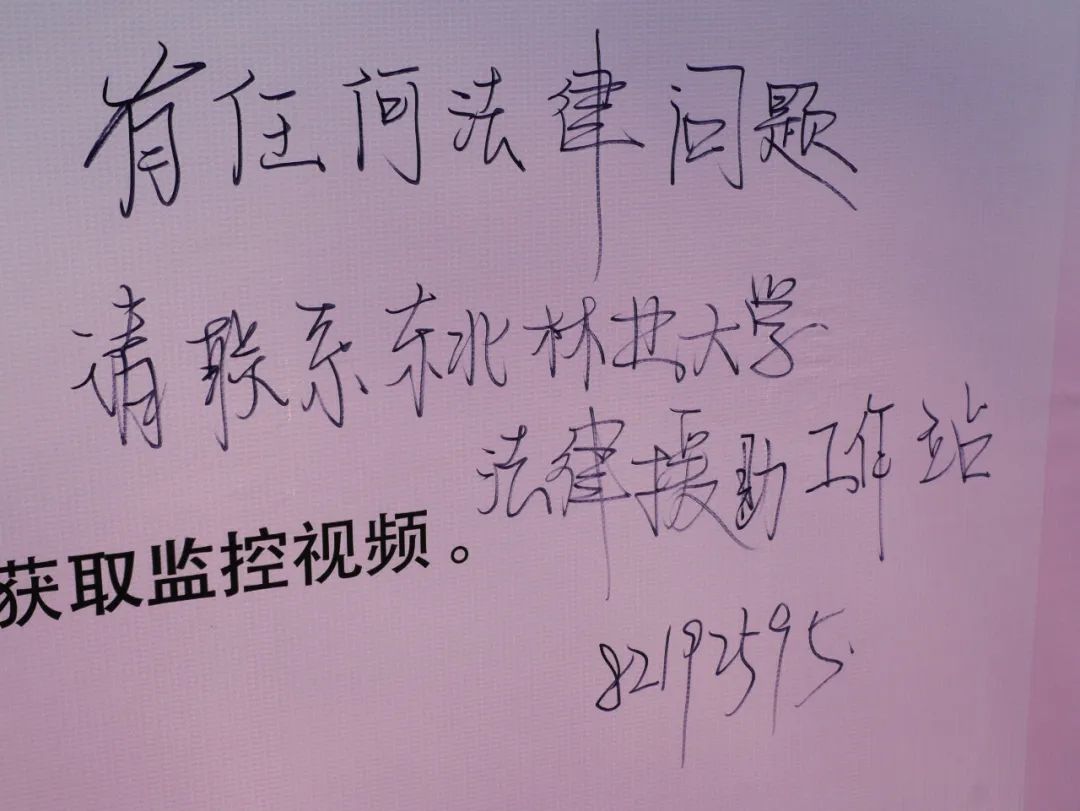 有任何法律问题
请联系东北林业大学
法律援助工作站
获取监控视频。
82192595.